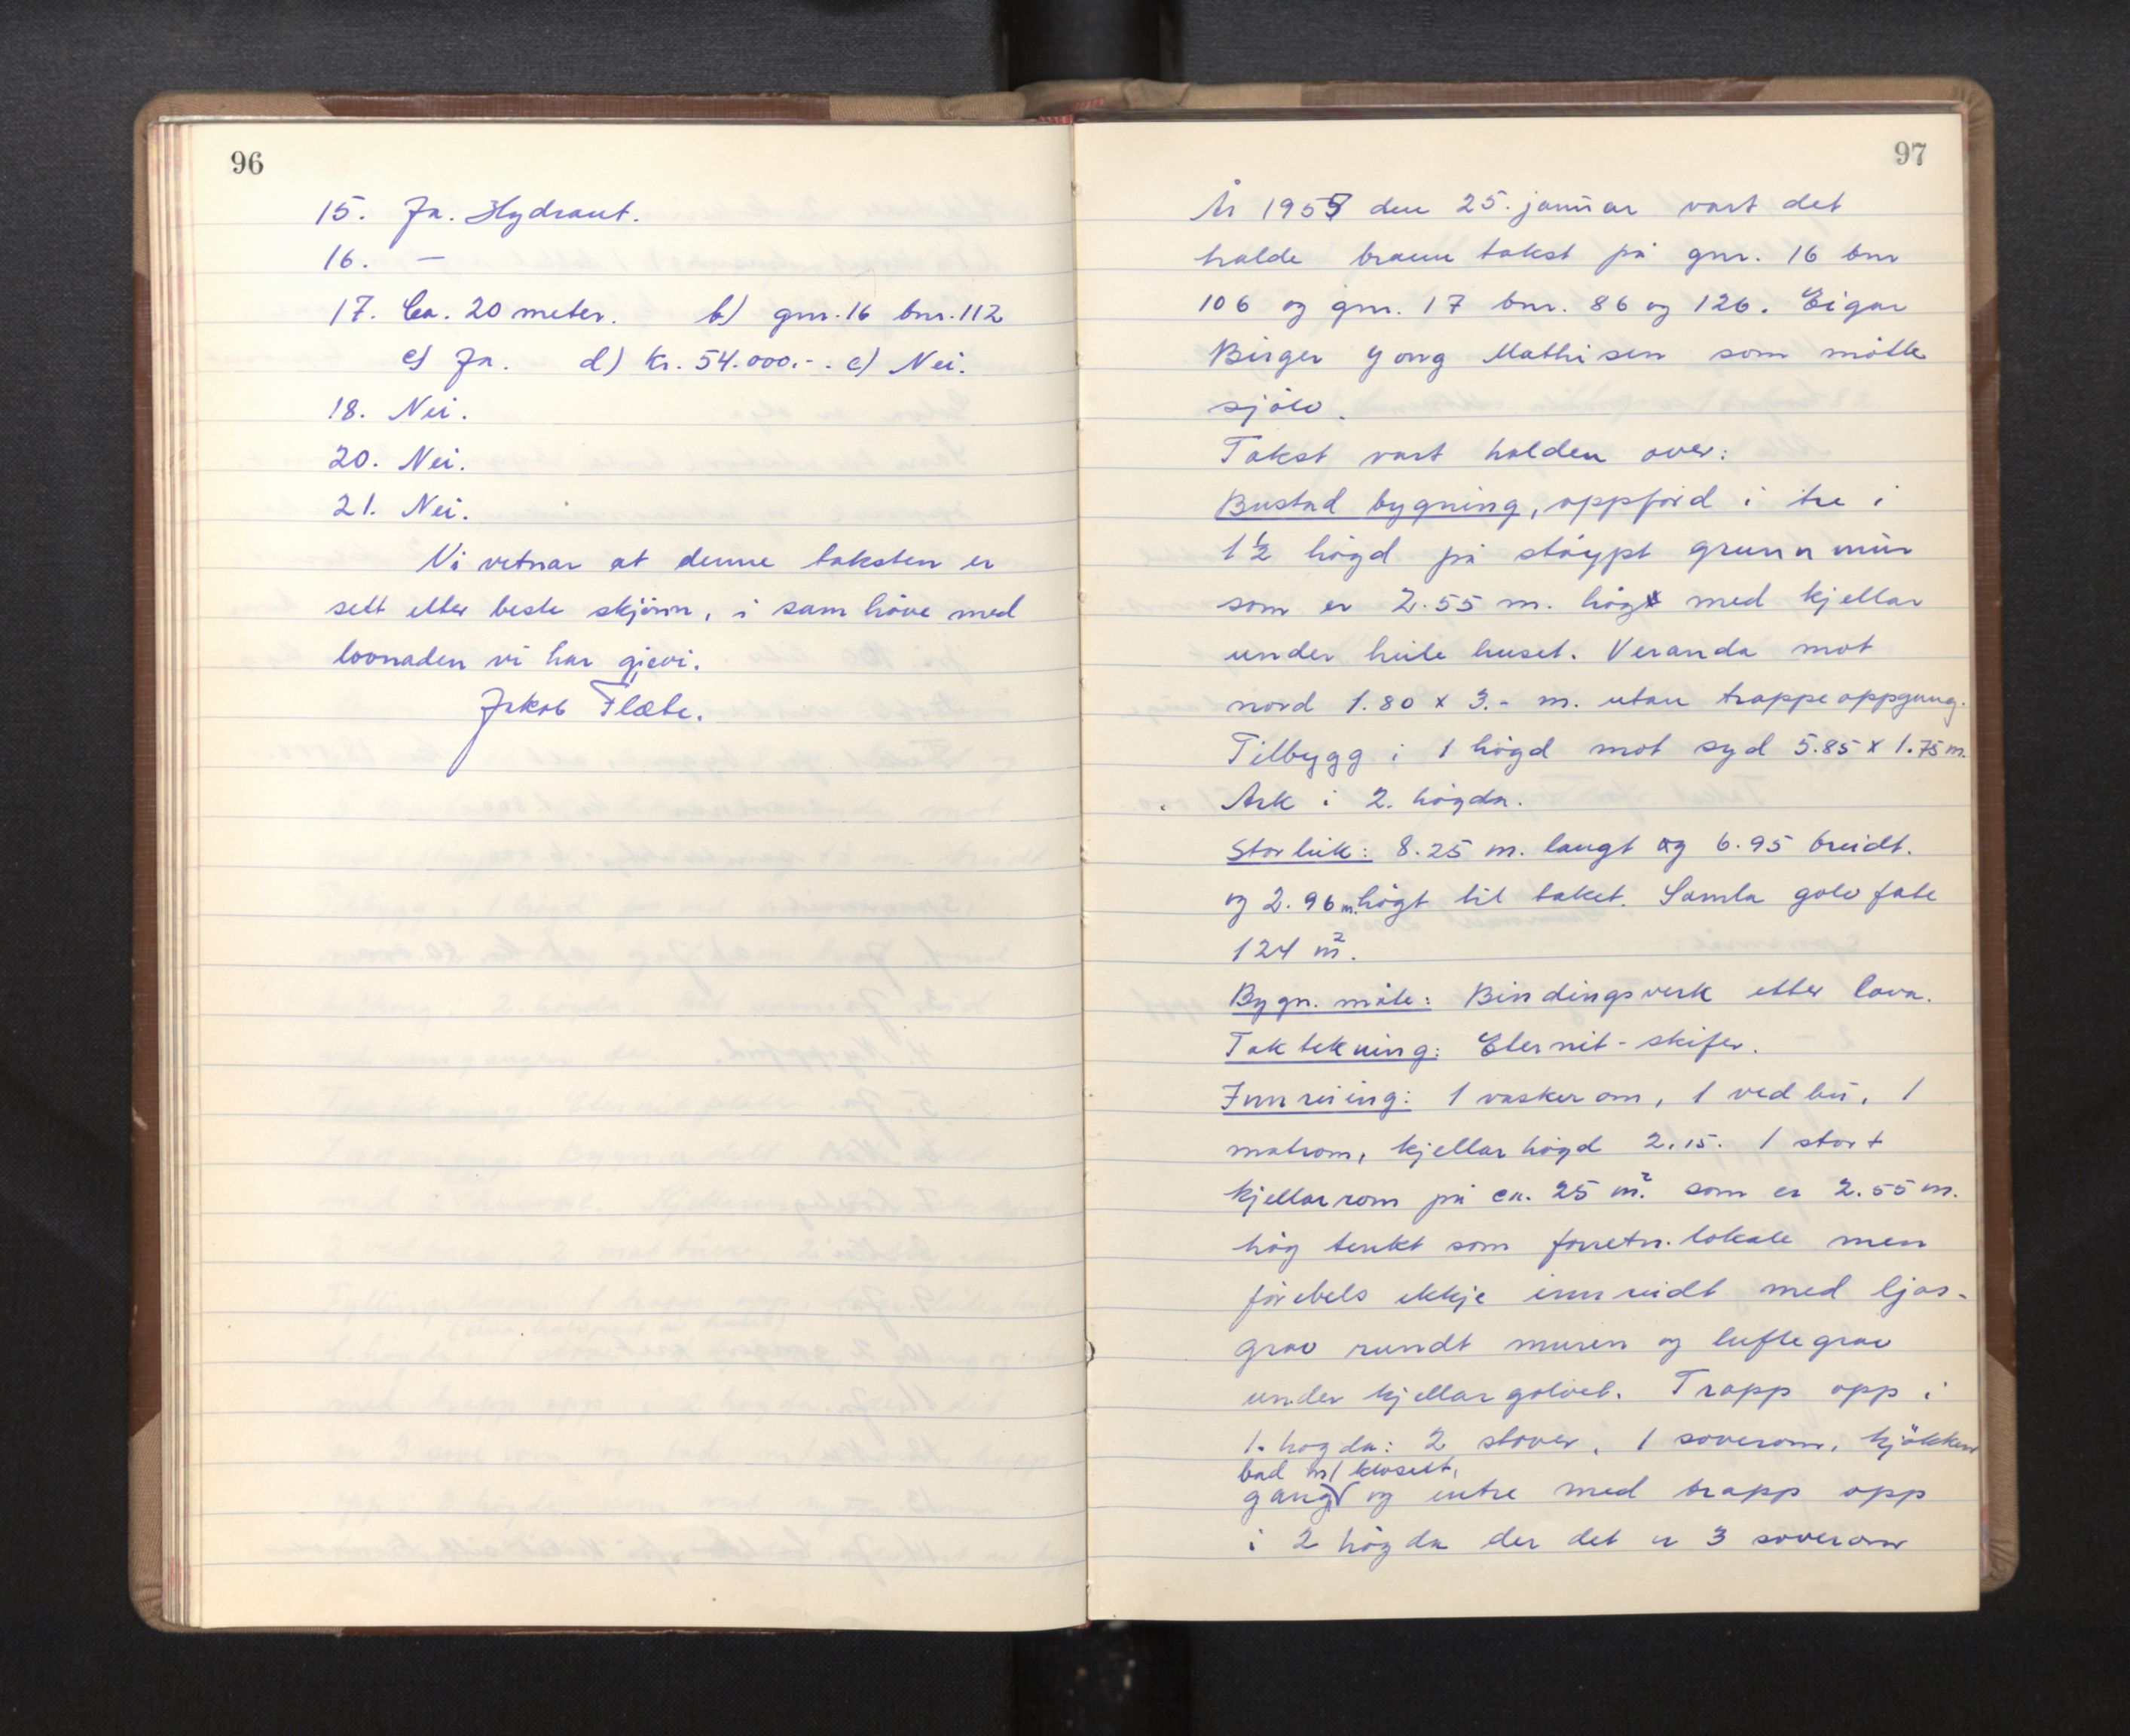 96
15. Ja. Hydrant.
16. —
17. Ca. 20 meter. b) gnr. 16 bnr. 112
c) Ja. d) kr. 54.000.-. e) Nei.
18. Nei.
20. Nei.
21. Nei.
Vi vetnar at denne taksten er
sett etter beste skjönn, i samhöve med
lovnaden vi har gjevi.
Jakob Flæte.
97
År 1955 den 25. januar vart det
halde brann takst på gnr. 16 bnr
106 og gnr. 17 bnr. 86 og 126. Eigar
Birger Mathisen som mötte
sjölv.
Takst vart halden over:
Bustad bygning, oppförd i tre i
1½ högd på stöypt grunnmur
som er 2.55 m. hög med kjellar
under heile huset. Veranda mot
nord 1.80 x 3.- m. utan trappeoppgang.
Tilbygg i 1 högd mot syd 5.85 x 1.75 m.
Ark i 2. högda.
Storleik: 8.25 m. langt og 6.95 breidt.
og 2.96 m. högt til taket. Samla golvfate
124 m².
Bygn. måte: Bindingsverk etter lova.
Taktekning: Eternit-skifer.
Innreiing: 1 vaskerom, 1 vedbu, 1
matrom, kjellarhögd 2.15. 1 stort
kjellarrom på ca. 25 m². som er 2.55 m.
hög tenkt som forretn. lokale men
förebels ikkje innreidt med ljos-
grav rundt muren og luftegrav
under kjellargolvet. Trapp opp i
1. högda: 2 stover, 1 soverom, kjökken
bad m/ klosett,
gang og entre med trapp opp
i 2 högda der det er 3 soverom